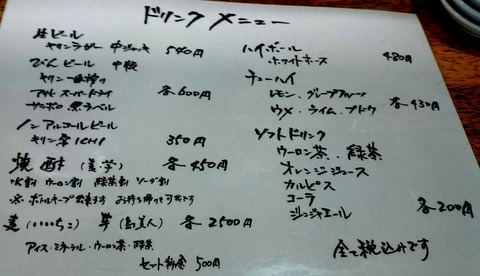 ドリンクメニュー
生ビール
キリンラガー 中ジョッキ 540円
びんビール 中瓶
キリン一番搾り
アサヒスーパードライ 各600円
サッポロ黒ラベル
ノンアルコールビール
キリン零ICHI 350円
焼酎(麦・芋) 各450円
水割 ウーロン割 緑茶割 ソーダ割
※ボトルキープ出来ます お持ち帰りも可能です
麦(いいちこ) 芋(島美人) 各2500円
アイス・ミネラル・ウーロン茶・緑茶
セット料金 500円
ハイボール
ホワイトホース 480円
チューハイ
レモン、グレープフルーツ
ウメ・ライム・ブドウ 各430円
ソフトドリンク
ウーロン茶・緑茶
オレンジジュース
カルピス
コーラ
ジンジャエール 各200円
全て税込みです